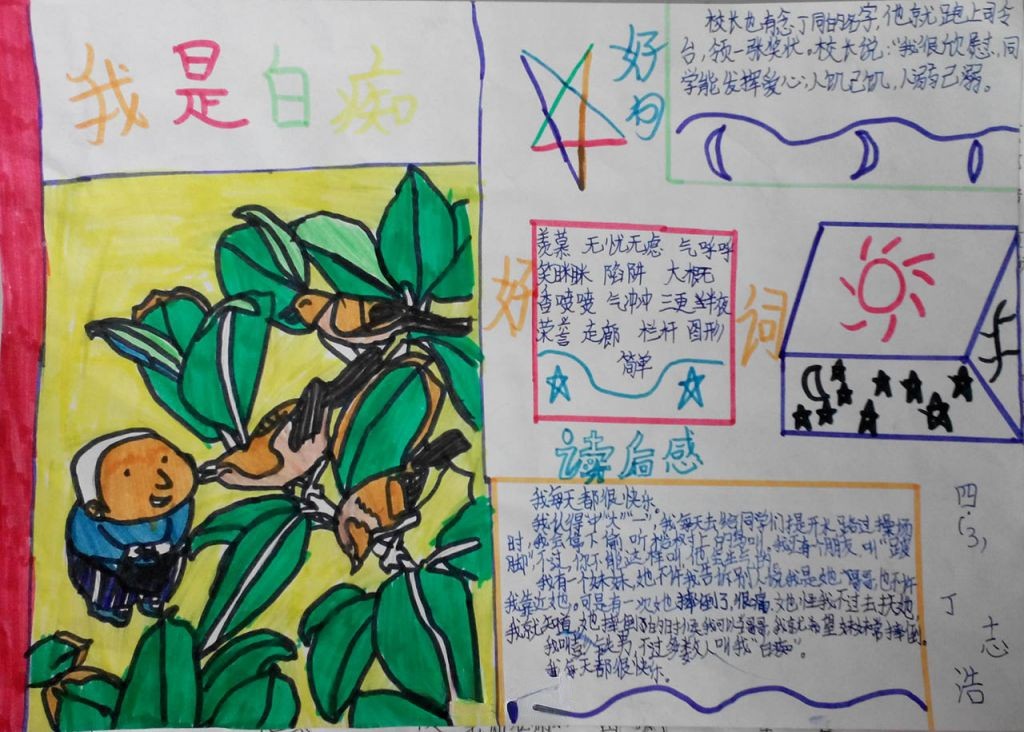 我是白痴
好句
校长也有念丁同的名字,他就跑上司令
台,领一张奖状。校长说:“我很欣慰,同
学能发挥爱心,人饥己饥,人溺己溺。
好词
羡慕 无忧无虑 气呼呼
笑眯眯 陷阱 大概
香喷喷 气冲冲 三更半夜
荣誉 走廊 栏杆 图形
简单
读后感
我每天都很快乐。
我认得“中”“大”“一”,我每天去给同学们提开水,路过操场
时,我会停下,听树上的鸟叫,我还有个朋友叫“跛
脚”,不过,你不能这样叫,他会生气的。
我有一个妹妹,她不许我告诉别人说我是她哥哥,也不许
我靠近她。可是有一次她摔倒了,很痛,她怪我不过去扶她,
我就知道,她摔倒的时候我可以当哥哥,我就希望妹妹常摔倒。
我叫 男,不过多数人叫我“白痴”。
我每天都很快乐。
四(3)
丁志浩